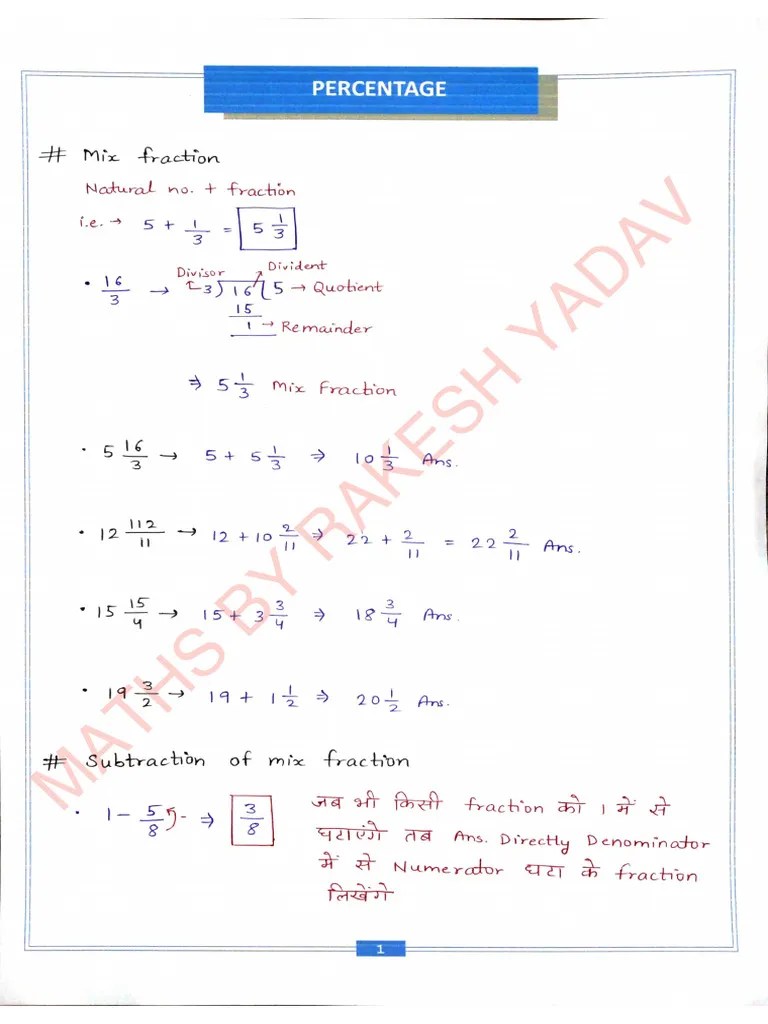 PERCENTAGE
# Mix fraction
Natural no. + fraction
i.e. → 5 + 1/3 = 5 1/3
Divisor Divident
• 16/3 → 3) 16 (5 → Quotient
15
1 → Remainder
⇒ 5 1/3 Mix Fraction
• 5 16/3 → 5 + 5 1/3 ⇒ 10 1/3 Ans.
• 12 112/11 → 12 + 10 2/11 ⇒ 22 + 2/11 = 22 2/11 Ans.
• 15 15/4 → 15 + 3 3/4 ⇒ 18 3/4 Ans.
• 19 3/2 → 19 + 1 1/2 ⇒ 20 1/2 Ans.
# Subtraction of mix fraction
• 1 - 5/8 - ⇒ 3/8 जब भी किसी fraction को 1 में से
घटाएंगे तब Ans. Directly Denominator
में से Numerator घटा के fraction
लिखेंगे
1
MATHS BY RAKESH YADAV